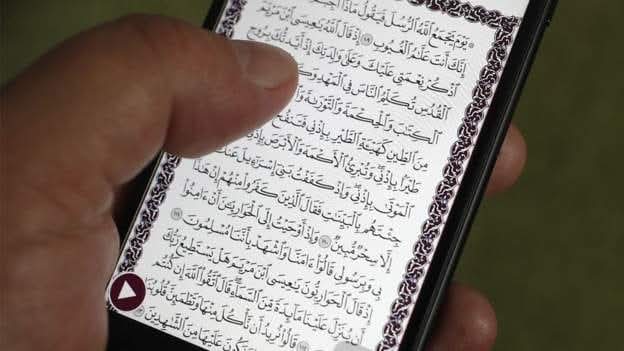 ۞ يَوْمَ يَجْمَعُ ٱللَّهُ ٱلرُّسُلَ فَيَقُولُ مَاذَآ
إِنَّكَ أَنتَ عَلَّٰمُ ٱلْغُيُوبِ ١٠٩ إِذْ قَالَ ٱللَّهُ يَٰعِيسَى ٱبْنَ مَرْيَمَ
ٱذْكُرْ نِعْمَتِى عَلَيْكَ وَعَلَىٰ وَٰلِدَتِكَ إِذْ أَيَّدتُّكَ بِرُوحِ
ٱلْقُدُسِ تُكَلِّمُ ٱلنَّاسَ فِى ٱلْمَهْدِ
ٱلْكِتَٰبَ وَٱلْحِكْمَةَ وَٱلتَّوْرَىٰةَ
مِنَ ٱلطِّينِ كَهَيْـَٔةِ ٱلطَّيْرِ بِإِذْنِى فَتَنفُخُ
طَيْرًۢا بِإِذْنِى وَتُبْرِئُ ٱلْأَكْمَهَ وَٱلْأَبْرَصَ
ٱلْمَوْتَىٰ بِإِذْنِى وَإِذْ كَفَفْتُ بَنِىٓ إِسْرَٰٓءِيلَ
جِئْتَهُم بِٱلْبَيِّنَٰتِ فَقَالَ ٱلَّذِينَ كَفَرُوا۟ مِنْهُمْ إِنْ هَٰذَآ
إِلَّا سِحْرٌ مُّبِينٌ ١١٠ وَإِذْ أَوْحَيْتُ إِلَى ٱلْحَوَارِيِّۦنَ أَنْ ءَامِنُوا۟
بِى وَبِرَسُولِى قَالُوٓا۟ ءَامَنَّا وَٱشْهَدْ بِأَنَّنَا مُسْلِمُونَ ١١١
إِذْ قَالَ ٱلْحَوَارِيُّونَ يَٰعِيسَى ٱبْنَ مَرْيَمَ هَلْ يَسْتَطِيعُ رَبُّكَ
أَن يُنَزِّلَ عَلَيْنَا مَآئِدَةً مِّنَ ٱلسَّمَآءِ قَالَ ٱتَّقُوا۟ ٱللَّهَ إِن كُنتُم
قَالُوا۟ نُرِيدُ أَن نَّأْكُلَ مِنْهَا وَتَطْمَئِنَّ قُلُوبُنَا
وَنَكُونَ عَلَيْهَا مِنَ ٱلشَّٰهِدِينَ